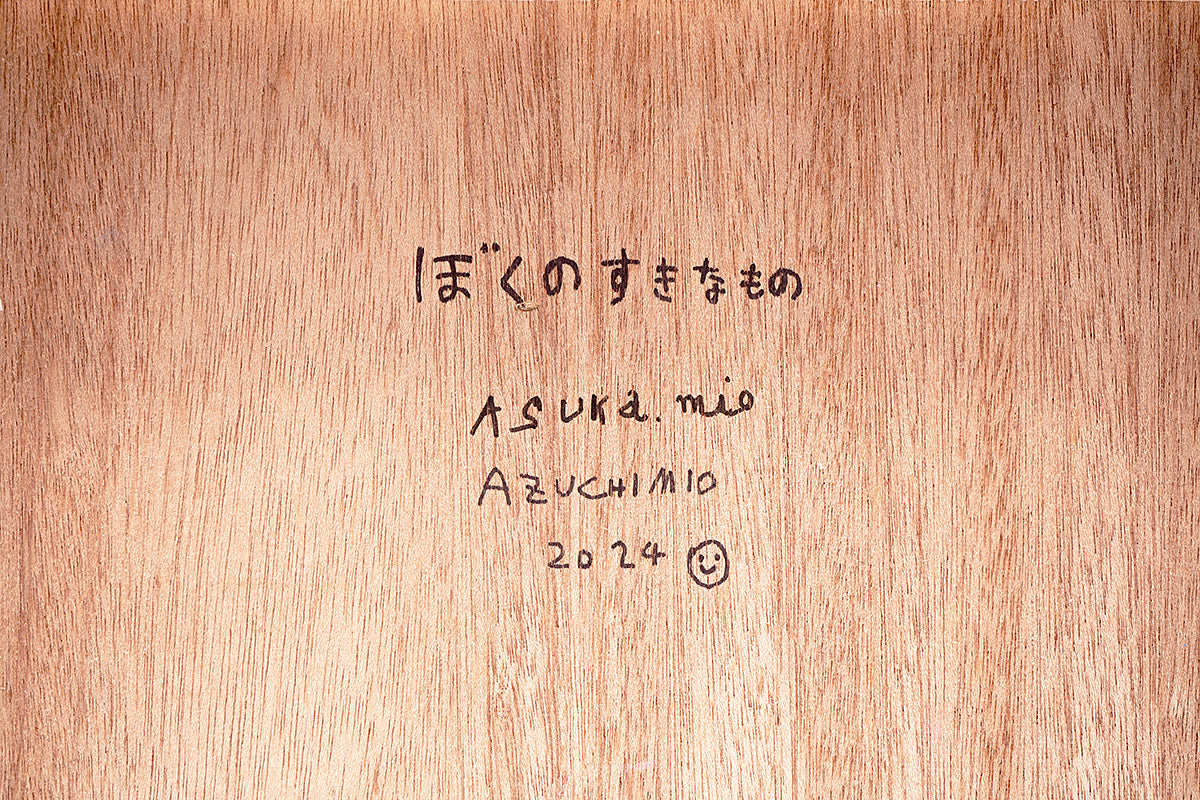 ぼくのすきなもの
ASUKa.mio
AZUCHIMIO
2024